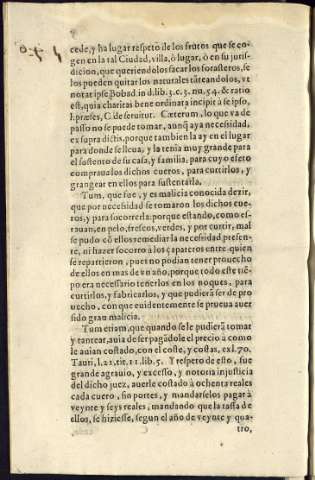 cede, y ha lugar respeto de los frutos que se co-
gen en la tal Ciudad, villa, ò lugar, ò en su juris-
dicion, que queriendolos sacar los forasteros, se
los pueden quitar los naturales tãteandolos, vt
notat ipse Bobad. in d. lib. 3. c. 3. nu. 54. & ratio
est, quia charitas bene ordinata incipit à se ipso,
l. præses, C. de seruitut. Cæterum, lo que va de
passo no se puede tomar, aunq̃ aya necessidad,
ex supra dictis, porque tambien la ay en el lugar
para donde se lleua, y la tenia muy grande para
el sustento de su casa, y familia. para cuyo efeto
compraua los dichos cueros, para curtirlos, y
grangear en ellos para sustentarla.
Tum, que fue, y es malicia conocida dezir,
que por necessidad se tomaron los dichos cue-
ros, y para socorrerla: porque estando, como es-
tauan, en pelo, frescos, verdes, y por curtir, mal
se pudo cõ ellos remediar la necessidad presen-
te, ni hazer socorro à los çapateros entre quien
se repartieron, pues no podian tener prouecho
de ellos en mas de vn año, porque todo este tiẽ-
po era necessario tenerlos en los noques, para
curtirlos, y fabricarlos, y que pudierã ser de pro
uecho, con que euidentemente se prueua auer
sido gran malicia.
Tum etiam, que quando se le pudierã tomar
y tantear, auia de ser pagãdole el precio à como
le auian costado, con el coste, y costas, ex l. 70.
Tauri, l. 21. tit. 11. lib. 5. Y respeto de esto, fue
grande agrauio, y excesso, y notoria injusticia
del dicho juez, auerle costado à ochenta reales
cada cuero, sin portes, y mandarselos pagar à
veynte y seys reales, mandando que la tassa de
ellos, se hiziesse, segun el año de veynte y qua-
tro,